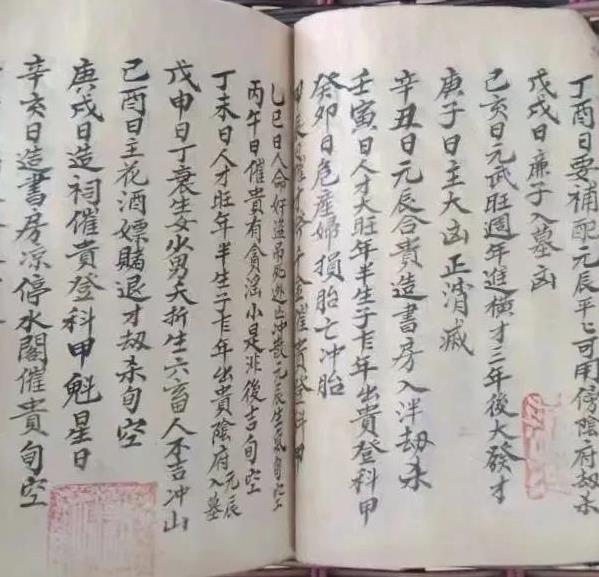 丁酉日要補配元辰平已可用傍陰府劫杀
戊戌日廉子入墓凶
己亥日元武旺週年進横才三年後大發才
庚子日主大凶正消滅
辛丑日元辰合貴造書房入泮劫杀
壬寅日人才大旺年半生子卞年出貴登科甲
癸卯日危産婦損胎亡冲胎
甲辰日催貴登科甲
乙巳日人命奸盗吊死逃亡冲散元辰生氣旬空
丙午日催貴有貪滛小是非後吉旬空
丁未日人才旺年半生子卞年出貴陰府元辰入墓
戊申日丁衰生女少男夭折生六畜人不吉冲山
己酉日主花酒嫖賭退才劫杀旬空
庚戌日造祠催貴登科甲魁星日
辛亥日造書房凉停水閣催貴旬空